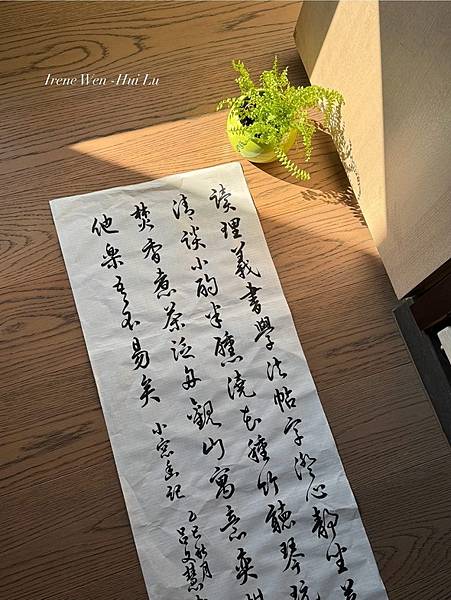 Irene Wen -Hui Lu
讀理義書學法帖字澄心靜坐
清談小酌半醺澆花種竹聽琴玩
焚香煮茶泛舟觀山寓意奕
他樂吾不易矣
小窗幽記
乙巳秋月
呂文慧